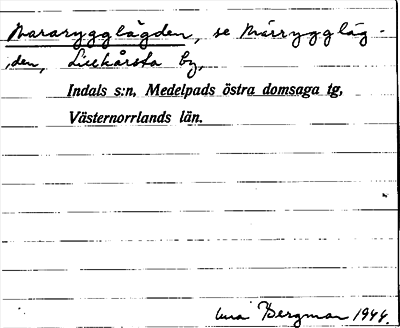 Mararygglägden, se Märryggläg-
den, Lickårsta by,
Indals s:n, Medelpads östra domsaga tg,
Västernorrlands län.
Bergman 1944.